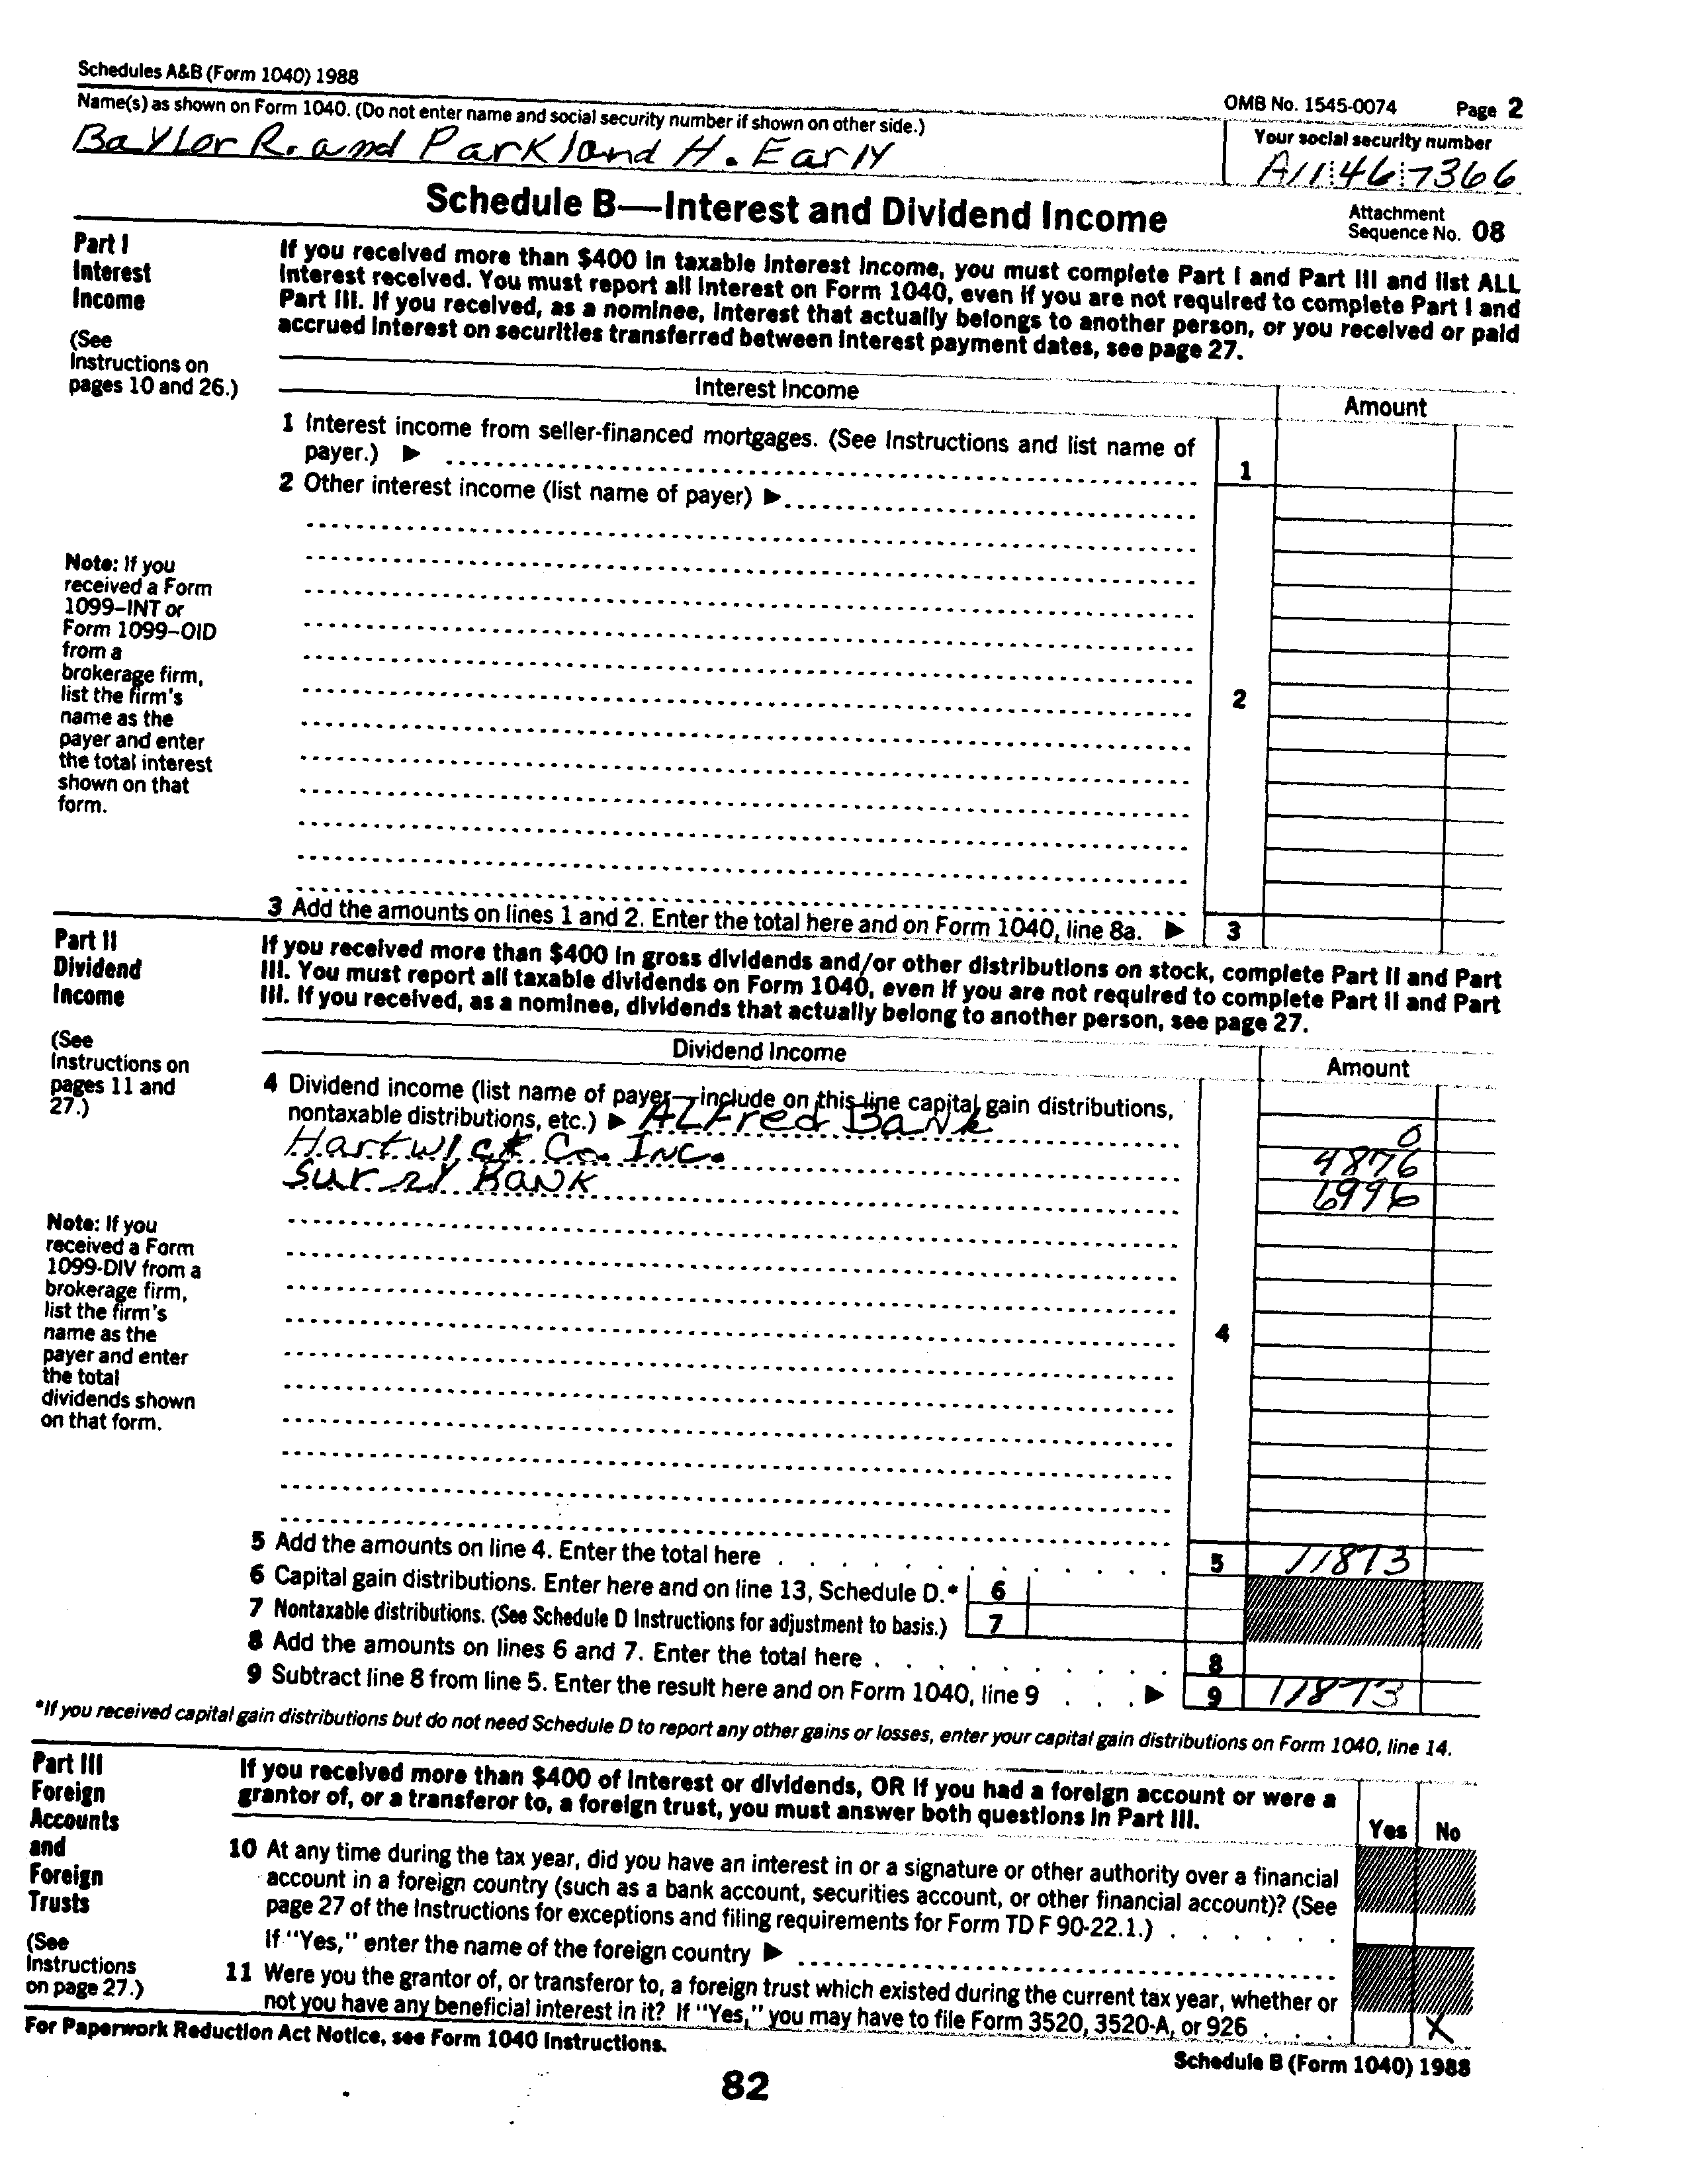 Schedules A&B (Form 1040) 1988
OMB No. 1545-0074 Page 2
Name(s) as shown on Form 1040. (Do not enter name and social security number if shown on other side.)
Your social security number
Baylor R. and Parkland H. Early
A11 46 7366
Schedule B—Interest and Dividend Income
Attachment
Sequence No. 08
Part I
Interest
Income
(See
Instructions on
pages 10 and 26.)
If you received more than $400 in taxable interest income, you must complete Part I and Part III and list ALL
interest received. You must report all interest on Form 1040, even if you are not required to complete Part I and
Part III. If you received, as a nominee, interest that actually belongs to another person, or you received or paid
accrued interest on securities transferred between interest payment dates, see page 27.
Interest Income
Amount
1 Interest income from seller-financed mortgages. (See Instructions and list name of
payer.) ▶
1
2 Other interest income (list name of payer) ▶
Note: If you
received a Form
1099–INT or
Form 1099–OID
from a
brokerage firm,
list the firm's
name as the
payer and enter
the total interest
shown on that
form.
2
3 Add the amounts on lines 1 and 2. Enter the total here and on Form 1040, line 8a. ▶ 3
Part II
Dividend
Income
(See
Instructions on
pages 11 and
27.)
If you received more than $400 in gross dividends and/or other distributions on stock, complete Part II and Part
III. You must report all taxable dividends on Form 1040, even if you are not required to complete Part II and Part
III. If you received, as a nominee, dividends that actually belong to another person, see page 27.
Dividend Income
Amount
4 Dividend income (list name of payer—include on this line capital gain distributions,
nontaxable distributions, etc.) ▶ ALFred BaNk 0
Hartwick Co. INC. 4876
BANK 6996
Note: If you
received a Form
1099-DIV from a
brokerage firm,
list the firm's
name as the
payer and enter
the total
dividends shown
on that form.
4
5 Add the amounts on line 4. Enter the total here . . . . . . . . . . . 5 11873
6 Capital gain distributions. Enter here and on line 13, Schedule D.* 6
7 Nontaxable distributions. (See Schedule D Instructions for adjustment to basis.) 7
8 Add the amounts on lines 6 and 7. Enter the total here . . . . . . . . . 8
9 Subtract line 8 from line 5. Enter the result here and on Form 1040, line 9 . . . ▶ 9 11873
*If you received capital gain distributions but do not need Schedule D to report any other gains or losses, enter your capital gain distributions on Form 1040, line 14.
Part III
Foreign
Accounts
and
Foreign
Trusts
(See
Instructions
on page 27.)
If you received more than $400 of interest or dividends, OR if you had a foreign account or were a
grantor of, or a transferor to, a foreign trust, you must answer both questions in Part III.
Yes No
10 At any time during the tax year, did you have an interest in or a signature or other authority over a financial
account in a foreign country (such as a bank account, securities account, or other financial account)? (See
page 27 of the Instructions for exceptions and filing requirements for Form TD F 90-22.1.) . . . . . .
If "Yes," enter the name of the foreign country ▶
11 Were you the grantor of, or transferor to, a foreign trust which existed during the current tax year, whether or
not you have any beneficial interest in it? If "Yes," you may have to file Form 3520, 3520-A, or 926 . . . X
For Paperwork Reduction Act Notice, see Form 1040 Instructions.
Schedule B (Form 1040) 1988
82